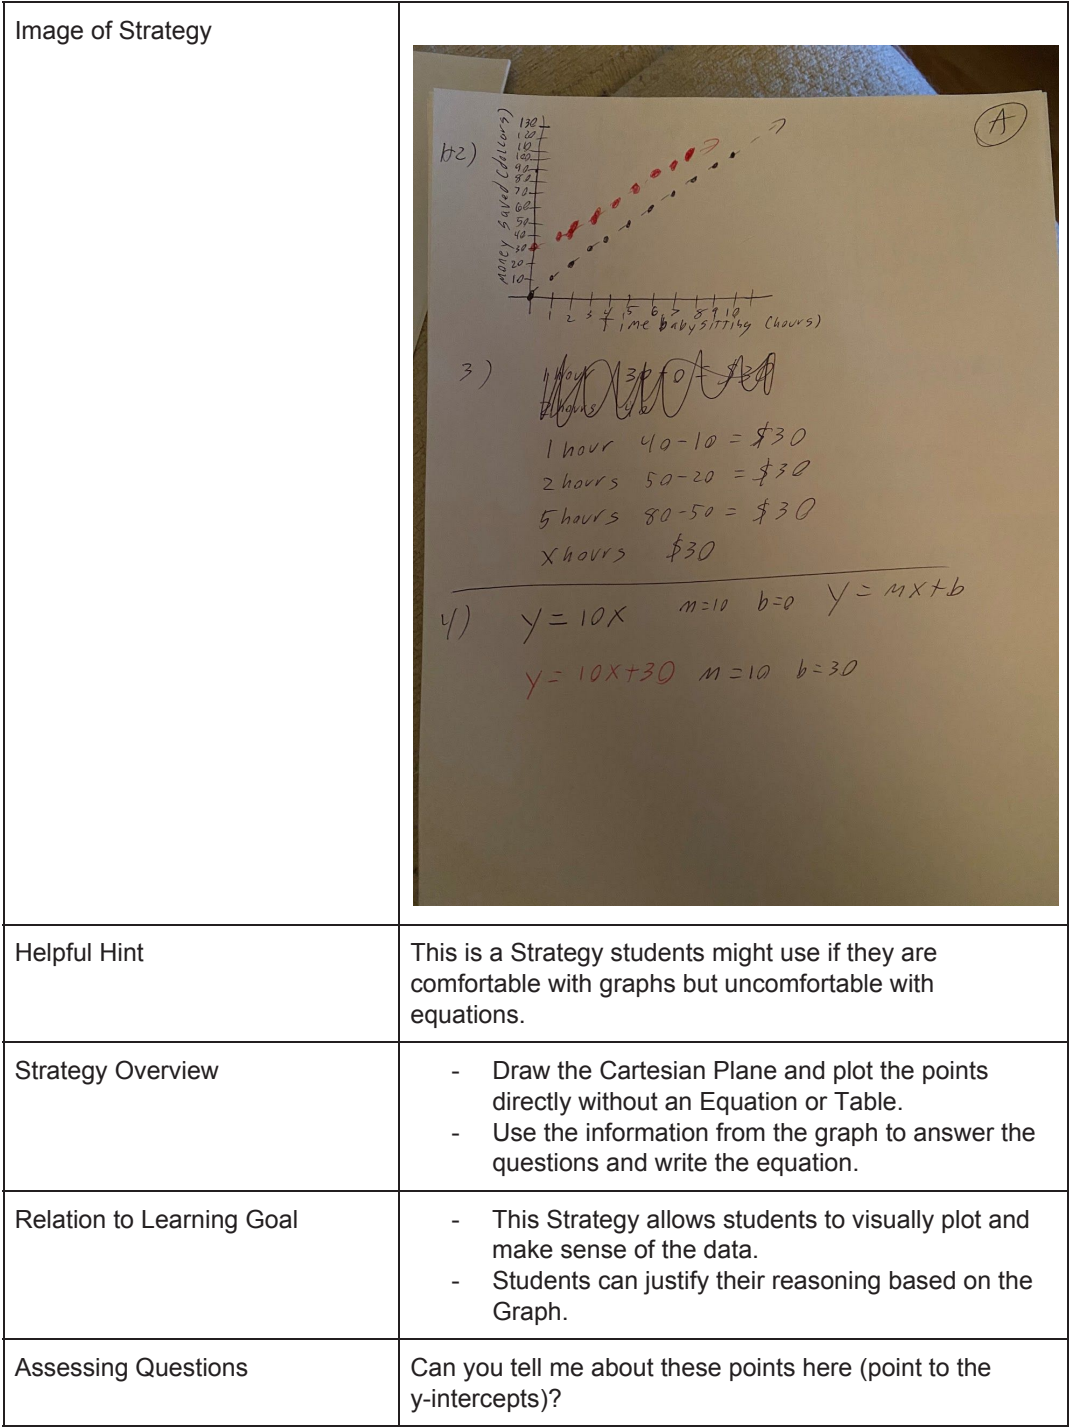 Image of Strategy
A
1+2)
Money Saved (dollars)
130
120
110
100
90
80
70
60
50
40
30
20
10
1 2 3 4 5 6 7 8 9 10
Time babysitting (hours)
3)
1 hour 40-10 = $30
2 hours 50-20 = $30
5 hours 80-50 = $30
x hours $30
4) y = 10x m=10 b=0 y = mx+b
y = 10x+30 m=10 b=30
Helpful Hint
This is a Strategy students might use if they are
comfortable with graphs but uncomfortable with
equations.
Strategy Overview
- Draw the Cartesian Plane and plot the points
directly without an Equation or Table.
- Use the information from the graph to answer the
questions and write the equation.
Relation to Learning Goal
- This Strategy allows students to visually plot and
make sense of the data.
- Students can justify their reasoning based on the
Graph.
Assessing Questions
Can you tell me about these points here (point to the
y-intercepts)?